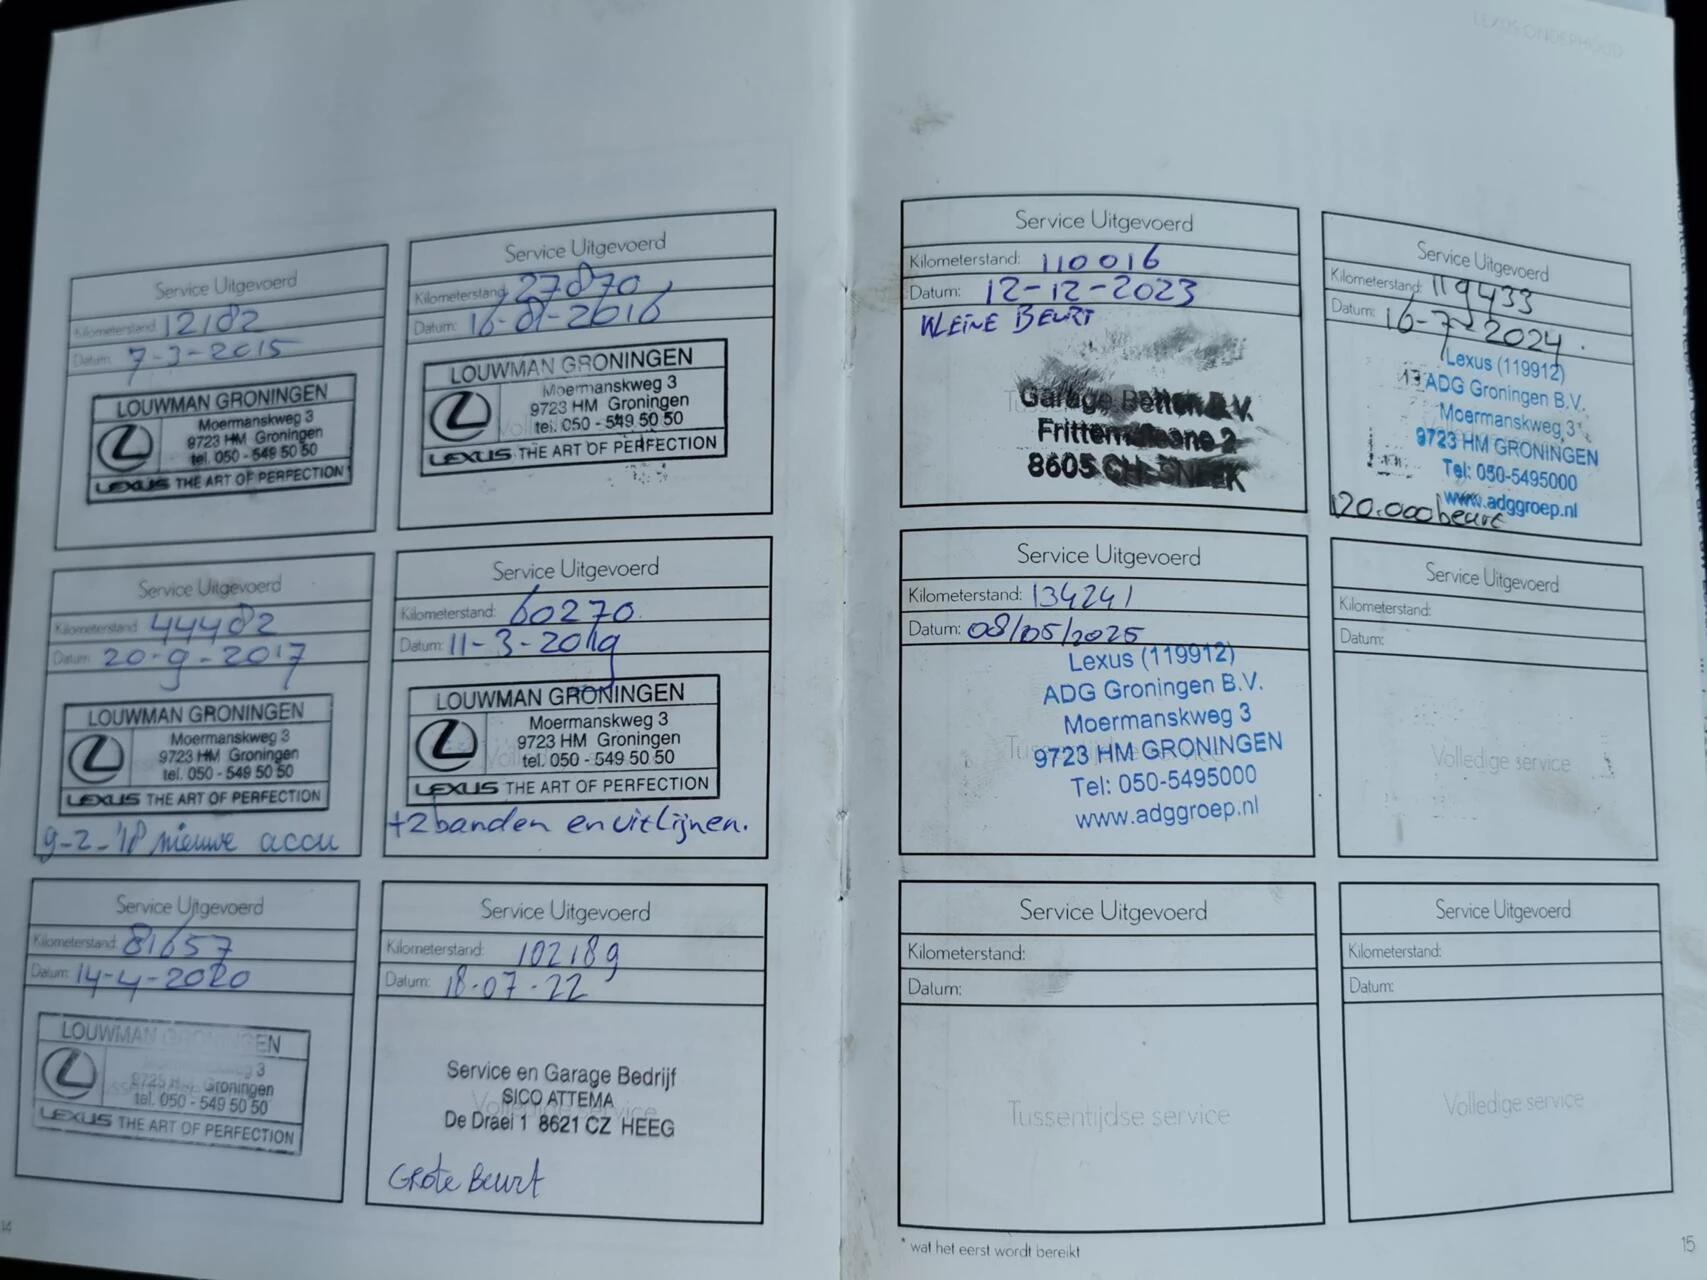 LEXUS ONDERHOUD
Service Uitgevoerd
Kilometerstand: 12182
Datum: 7-3-2015
LOUWMAN GRONINGEN
Moermanskweg 3
9723 HM Groningen
tel. 050 - 549 50 50
LEXUS THE ART OF PERFECTION
Service Uitgevoerd
Kilometerstand: 27870
Datum: 16-01-2016
LOUWMAN GRONINGEN
Moermanskweg 3
9723 HM Groningen
tel. 050 - 549 50 50
LEXUS THE ART OF PERFECTION
Service Uitgevoerd
Kilometerstand: 44482
Datum: 20-9-2017
LOUWMAN GRONINGEN
Moermanskweg 3
9723 HM Groningen
tel. 050 - 549 50 50
LEXUS THE ART OF PERFECTION
9-2-'18 nieuwe accu
Service Uitgevoerd
Kilometerstand: 60270
Datum: 11-3-2019
LOUWMAN GRONINGEN
Moermanskweg 3
9723 HM Groningen
tel. 050 - 549 50 50
LEXUS THE ART OF PERFECTION
+2 banden en uitlijnen.
Service Uitgevoerd
Kilometerstand: 81657
Datum: 14-4-2020
LOUWMAN GRONINGEN
3
9723 HM Groningen
tel. 050 - 549 50 50
LEXUS THE ART OF PERFECTION
Service Uitgevoerd
Kilometerstand: 102189
Datum: 18-07-22
Service en Garage Bedrijf
SICO ATTEMA
Volledige service
De Draei 1 8621 CZ HEEG
Grote Beurt
14
Service Uitgevoerd
Kilometerstand: 110016
Datum: 12-12-2023
KLEINE BEURT
Garage B.V.
2
8605 CH SNEEK
Service Uitgevoerd
Kilometerstand: 119433
Datum: 16-7-2024
Lexus (119912)
ADG Groningen B.V.
Moermanskweg 3
9723 HM GRONINGEN
Tel: 050-5495000
www.adggroep.nl
120.000 beurt
Service Uitgevoerd
Kilometerstand: 134241
Datum: 08/05/2025
Lexus (119912)
ADG Groningen B.V.
Moermanskweg 3
9723 HM GRONINGEN
Tel: 050-5495000
www.adggroep.nl
Service Uitgevoerd
Kilometerstand:
Datum:
Volledige service
Service Uitgevoerd
Kilometerstand:
Datum:
Tussentijdse service
Service Uitgevoerd
Kilometerstand:
Datum:
Volledige service
* wat het eerst wordt bereikt
15